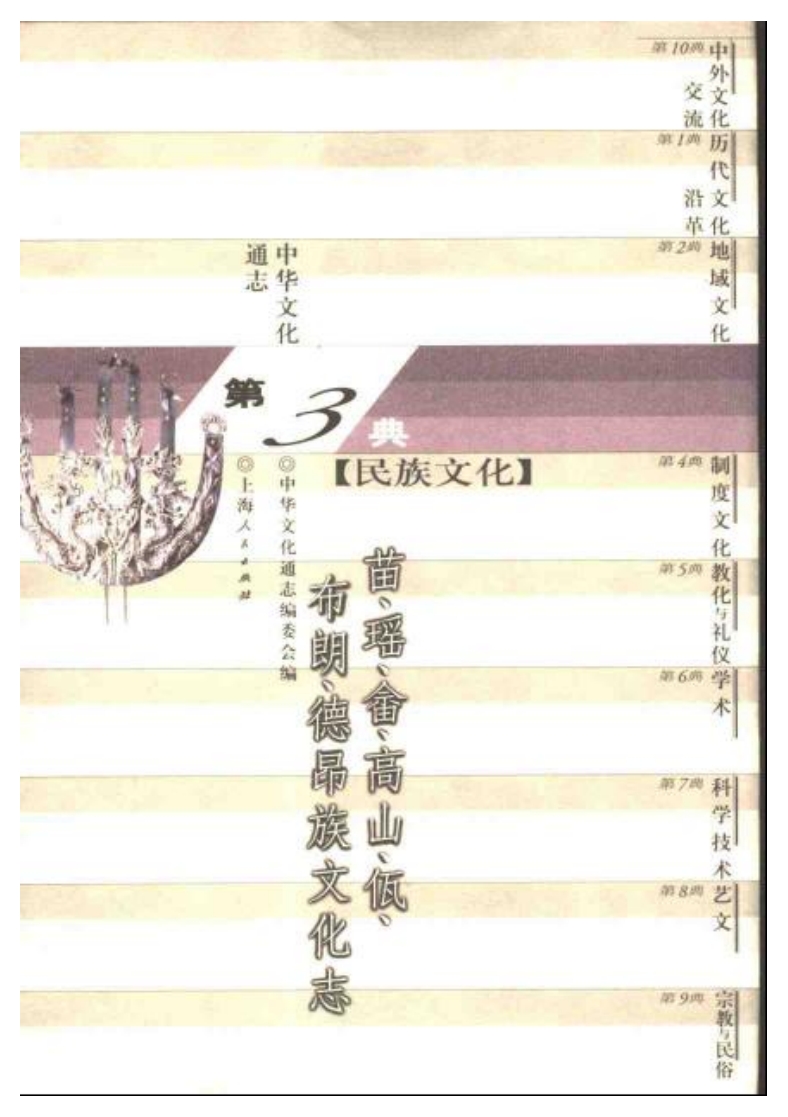 第10典
中外文化
交流
第1典
历代文化
沿革
第2典
地域文化
中华文化
通志
第3典
【民族文化】
苗、瑶、畲、高山、佤、
布朗、德昂族文化志
◎中华文化通志编委会编
◎上海人民出版社
第4典
制度文化
第5典
教化与礼仪
第6典
学术
第7典
科学技术
第8典
艺文
第9典
宗教与民俗